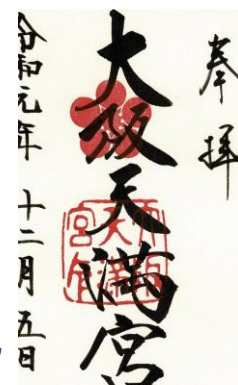 奉拝
大阪天満宮
令和元年 十二月五日